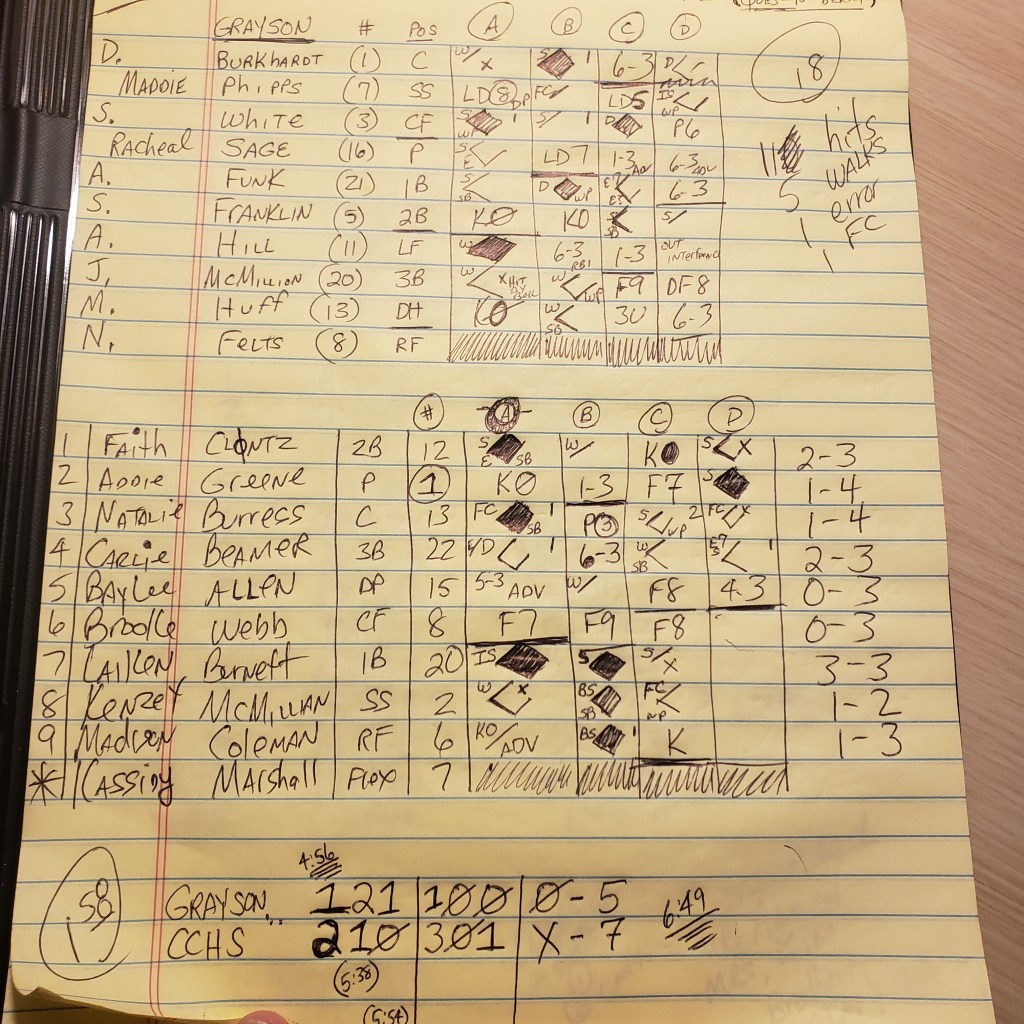 GRAYSON # POS A B C D
D. BURKHARDT (1) C W/ x S 1 6-3 D/
MADDIE PhiPPS (7) SS LD(8)DP FC/ LD5 IS WP
S. White (3) CF S 1 W S/ 1 D P6
RAcheal SAGE (16) P S E LD7 1-3 ADV 6-3 ADV
A. FUNK (21) 1B S SB D WP E7 6-3
S. FRANKLIN (5) 2B KØ KO S SB S/
A. Hill (11) LF W 6-3 RBI 1-3 OUT INTERFERENCE
J. McMillion (20) 3B W x HIT W WP F9 DF8
M. Huff (13) DH KO W SB 3U 6-3
N. FELTS (8) RF
18
11 hits
5 WALKS
1 error
1 FC
# A B C D
1 FAith CLONTZ 2B 12 S E SB W/ KO S x 2-3
2 ADDie Greene P 1 KØ 1-3 F7 S 1-4
3 NATALie Burress C 13 FC 1 SB P(3) S 2 WP FC x 1-4
4 CARLie BEAMER 3B 22 1 6-3 W SB E7 S 1 2-3
5 BAYLee ALLEN DP 15 5-3 ADV W/ F8 4.3 0-3
6 Brooke Webb CF 8 F7 F9 F8 0-3
7 LAiKEN Burnett 1B 20 IS S S/ x 3-3
8 KenZey McMillian SS 2 W x BS SB FC WP 1-2
9 MADison ColeMAN RF 6 KO/ADV BS 1 K 1-3
* CASSiDy MArshall FLEX 7
4:56
GRAYSON.. 121 100 0-5 6:49
CCHS 210 301 X-7
(5:38)
(5:54)